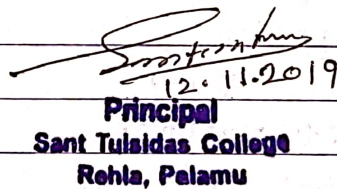 12.11.2019
Principal
Sant Tulsidas College
Rehla, Palamu